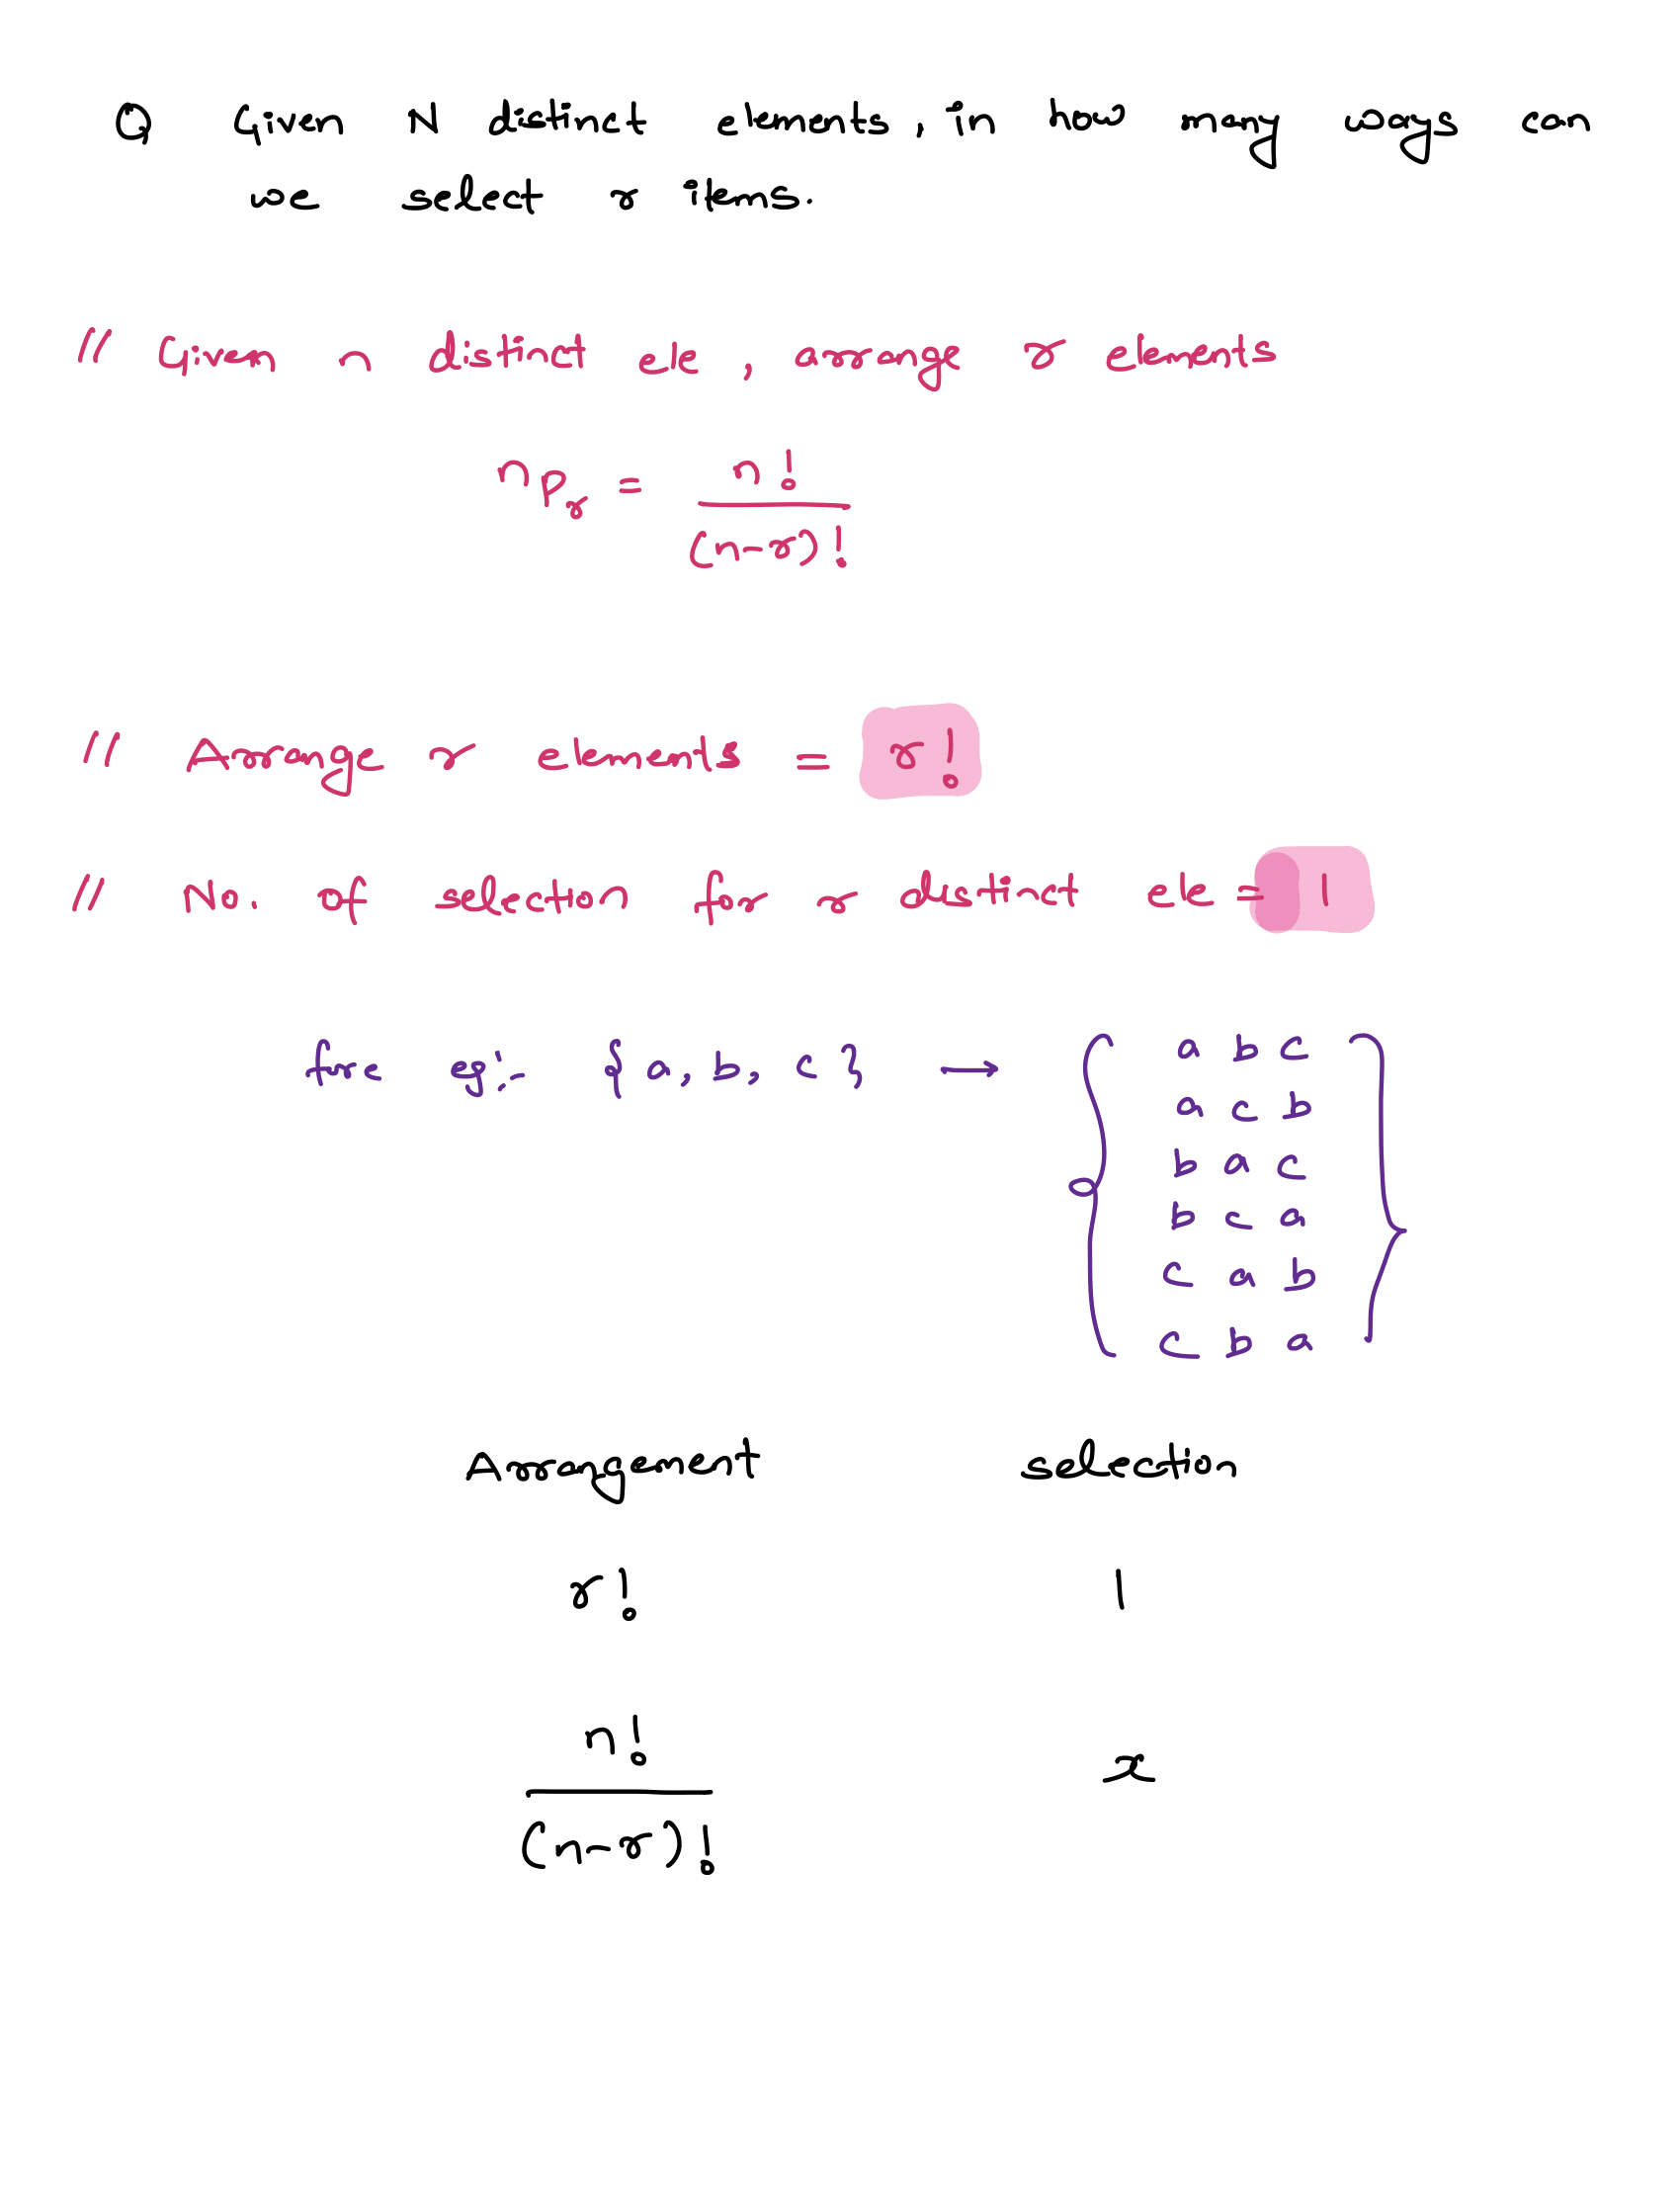 Q Given N distinct elements, in how many ways can
we select r items.
// Given n distinct ele, arrange r elements
nPr = n! / (n-r)!
// Arrange r elements = r!
// No. of selection for r distinct ele = 1
fre eg:- {a, b, c} → { a b c
a c b
b a c
b c a
c a b
c b a }
Arrangement selection
r! 1
n! / (n-r)! x